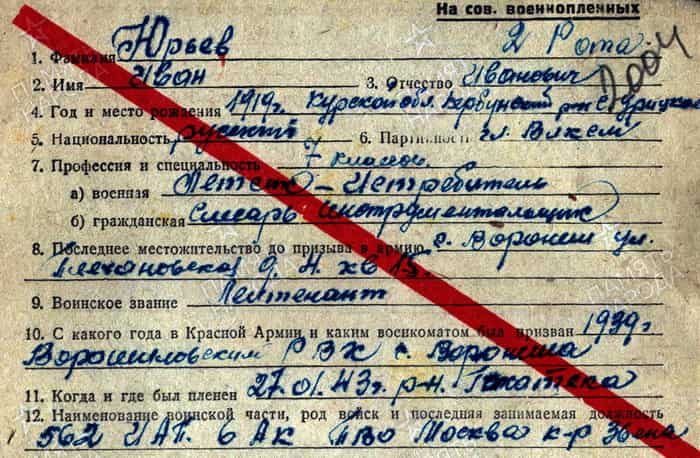 На сов. военнопленных
1. Фамилия Юрьев 2 Рота
2. Имя Иван 3. Отчество Иванович
4. Год и место рождения 1919г. Курской обл. р-н с.
5. Национальность русский 6. Партийность чл. ВЛКСМ
7. Профессия и специальность 7 классов
а) военная Летчик-Истребитель
б) гражданская Слесарь инструментальщик
8. Последнее местожительство до призыва в армию г. Воронеж ул.
Плехановская д. 4. кв 15.
9. Воинское звание Лейтенант
10. С какого года в Красной Армии и каким военкоматом был призван 1939г
Ворошиловским РВК г. Воронежа
11. Когда и где был пленен 27.01.43г. р-н.
12. Наименование воинской части, род войск и последняя занимаемая должность
562 ИАП. 6 АК ПВО Москва к-р Звена